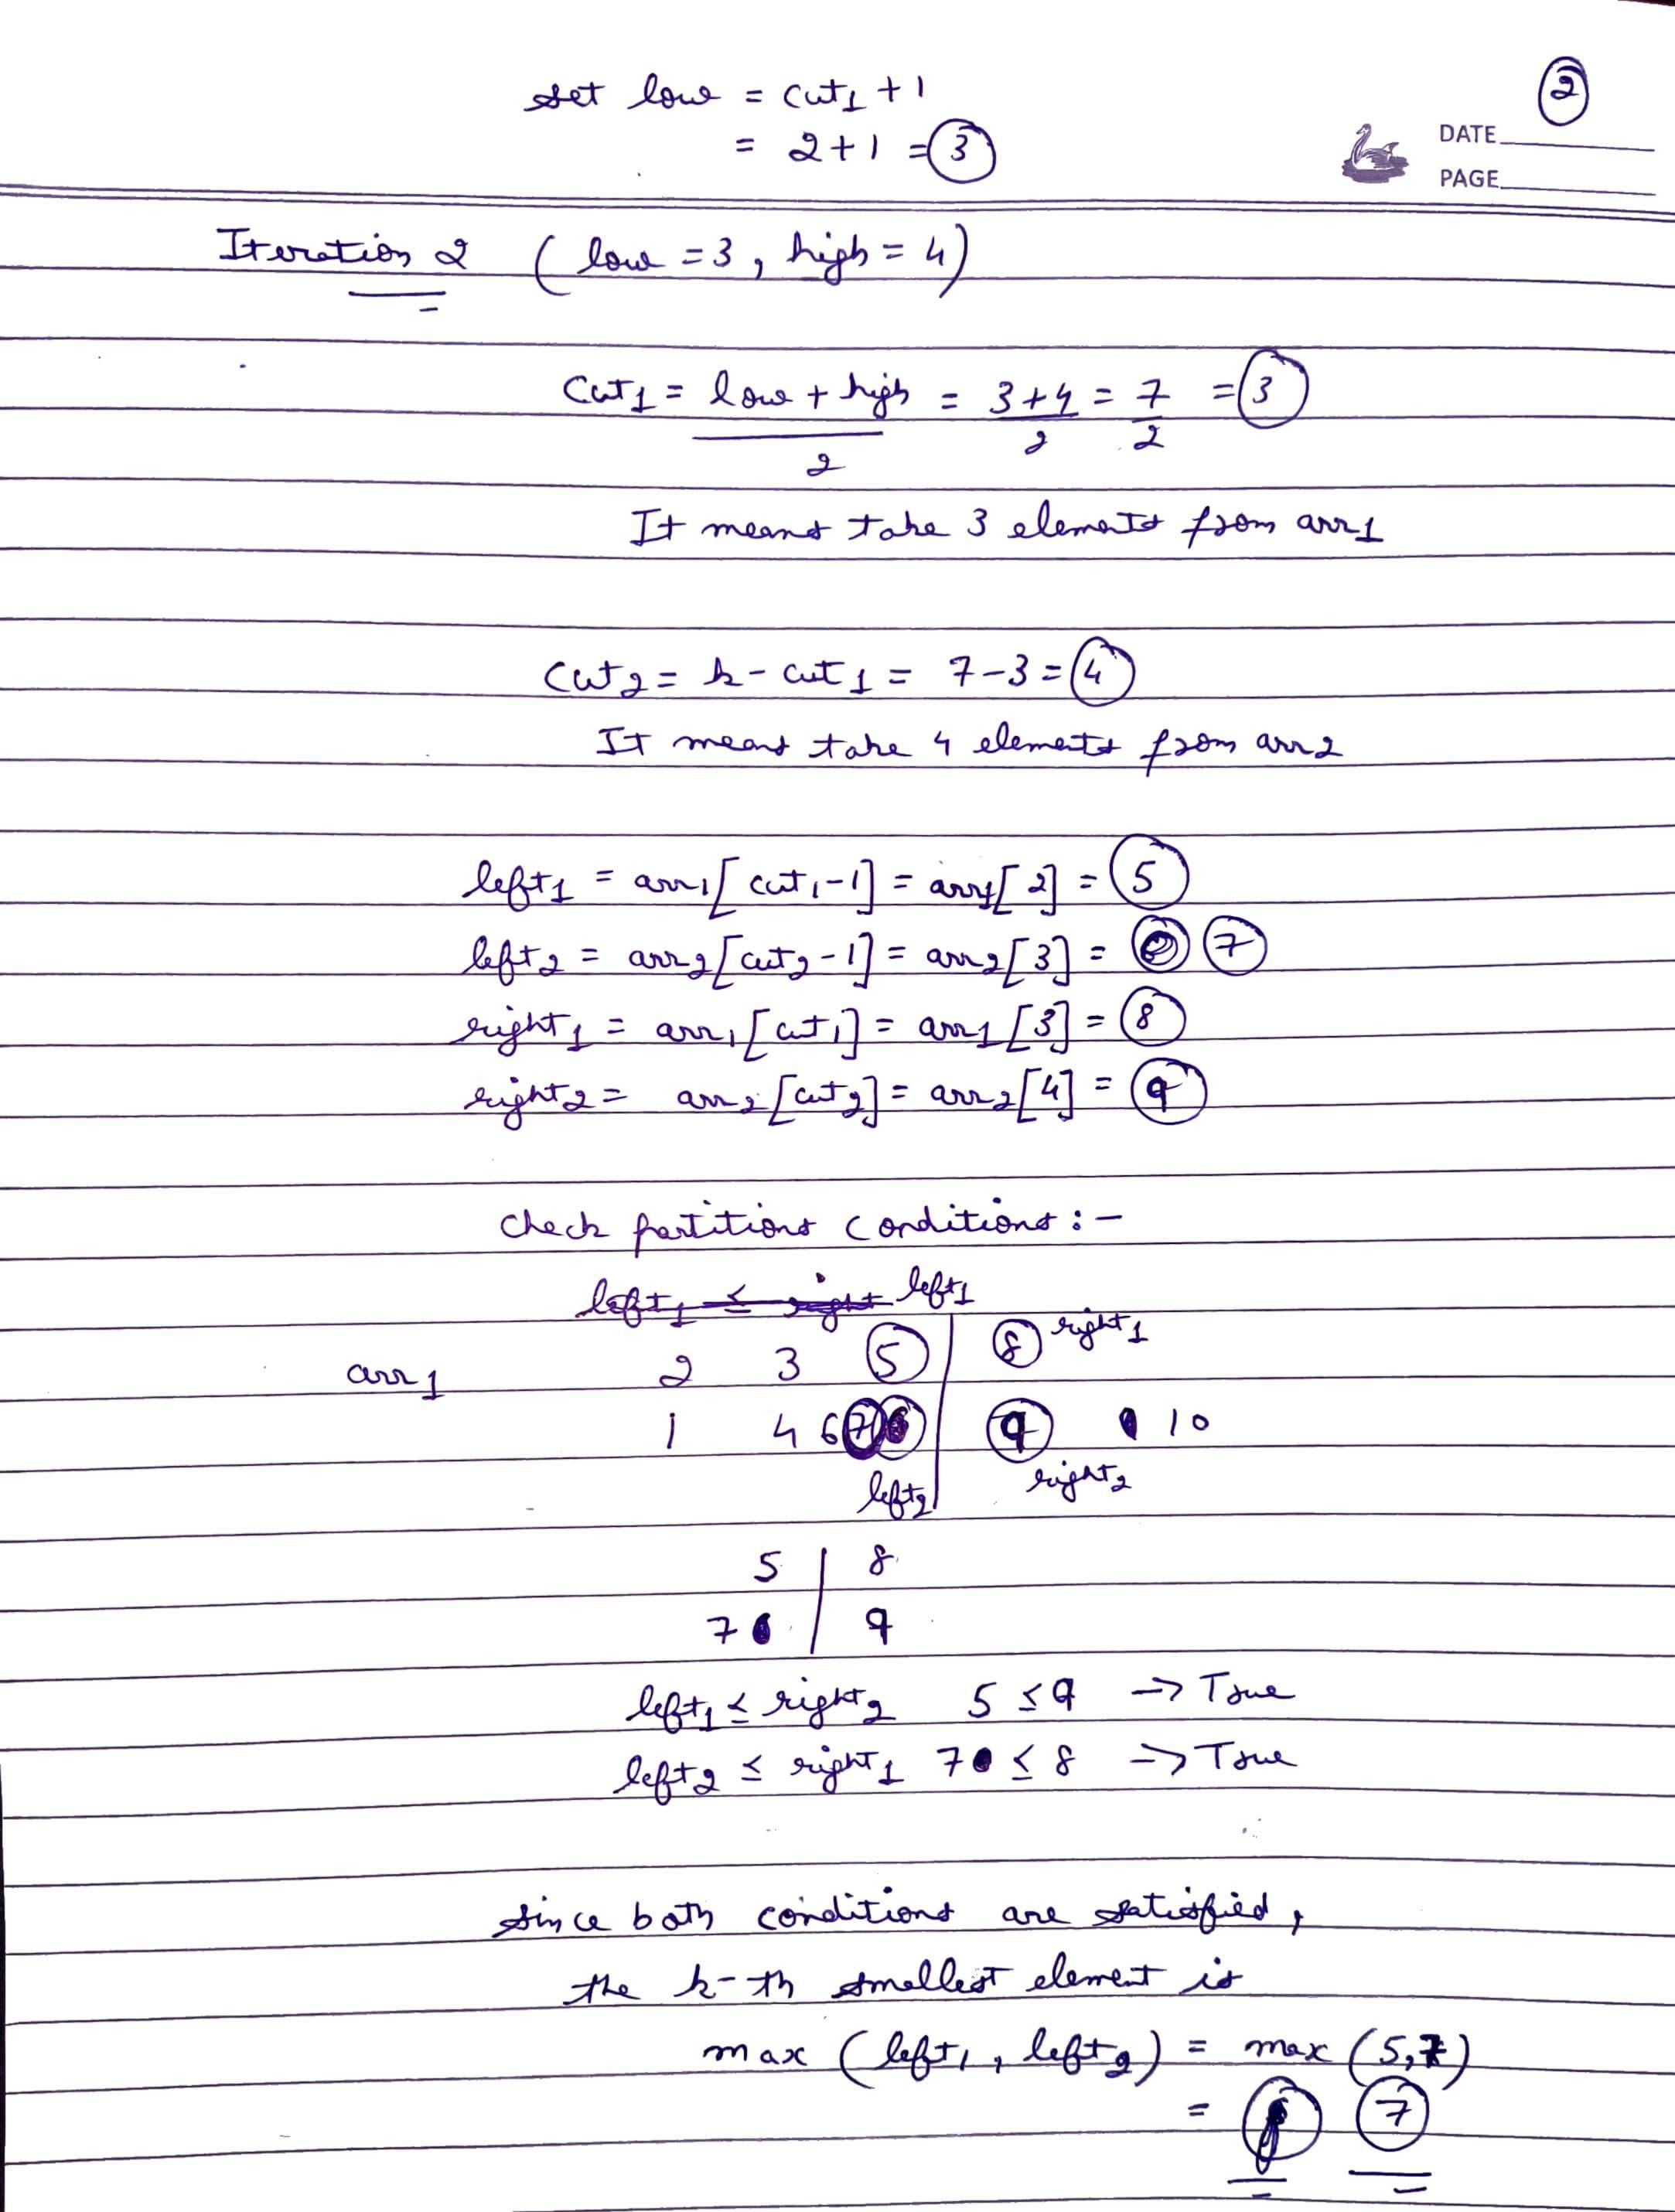 ②
set low = cut1 + 1
= 2+1 = 3
DATE
PAGE
Iteration 2 ( low = 3, high = 4)
cut1 = low + high / 2 = 3+4 / 2 = 7 / 2 = 3
It means take 3 elements from arr1
cut2 = k - cut1 = 7-3 = 4
It means take 4 elements from arr2
left1 = arr1[cut1-1] = arr1[2] = 5
left2 = arr2[cut2-1] = arr2[3] = 7
right1 = arr1[cut1] = arr1[3] = 8
right2 = arr2[cut2] = arr2[4] = 9
Check partitions conditions :-
left1 ≤ right left1
arr1 2 3 5 | 8 right1
1 4 6 7 | 9 10
left2 right2
5 | 8
7 | 9
left1 ≤ right2 5 ≤ 9 -> True
left2 ≤ right1 7 ≤ 8 -> True
since both conditions are satisfied,
the k-th smallest element is
max (left1, left2) = max (5,7)
= 7